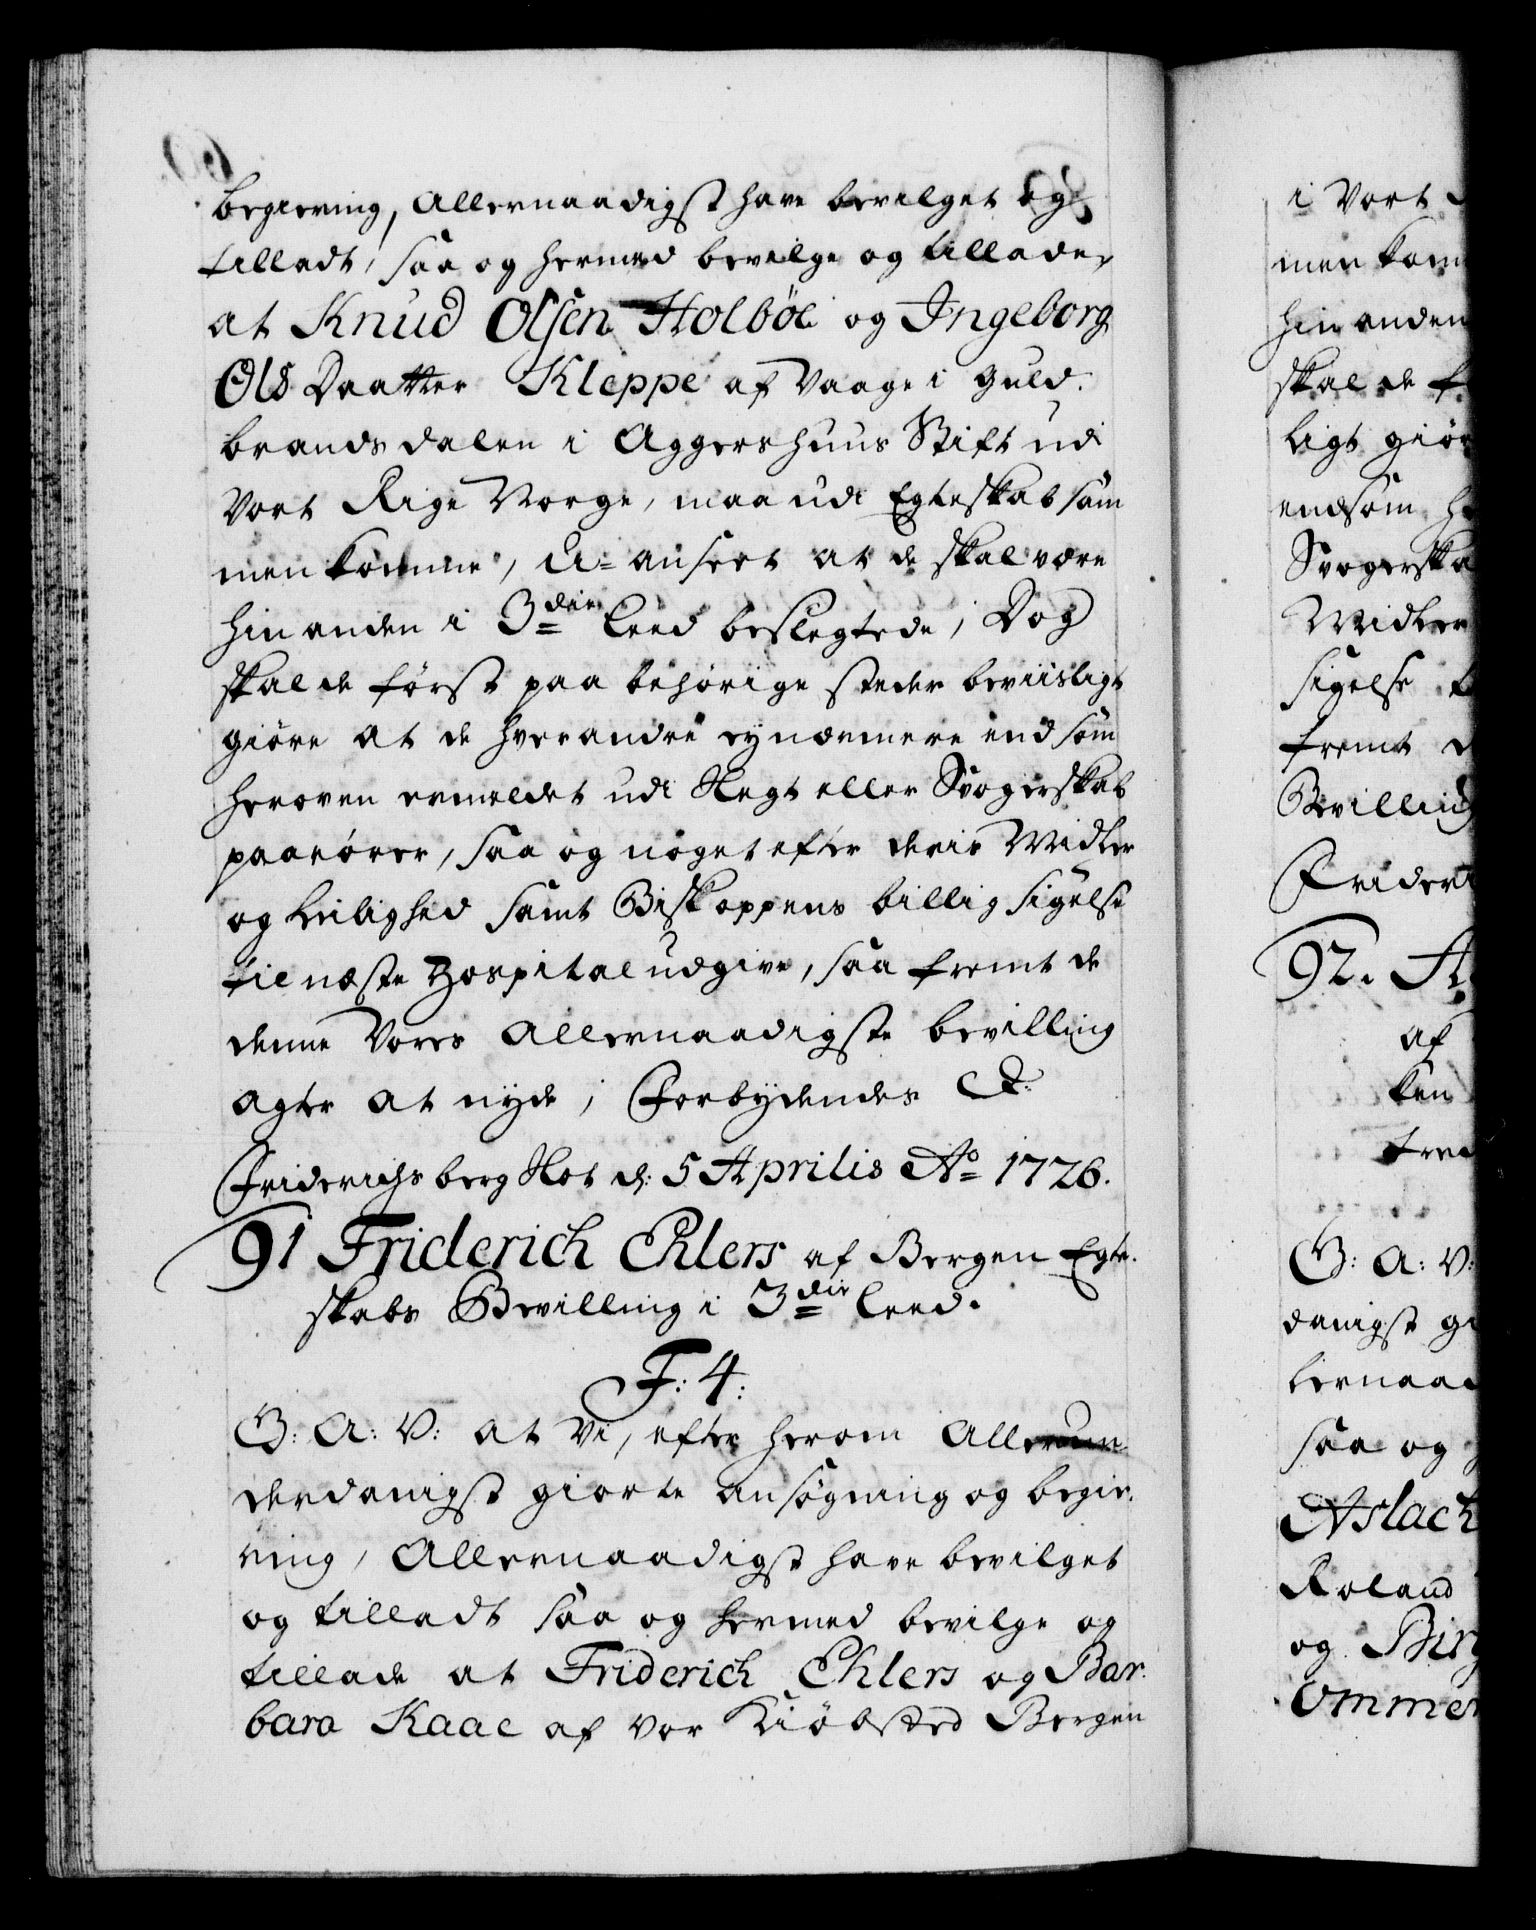 begiering, Allernaadigst have bevilget og
tilladt, saa og hermed bevilge og tillade,
at Knud Olsen Holböe og Ingeborg
Ols Daatter Kleppe af Vaage i Guld-
brands dalen i Aggershuus Stift udi
Vort Rige Norge, maa udi Egteskab sam
men komme, U=anseet at de skal være
hin anden i 3die Leed beslegtede; Dog
skal de først paa behørige steder beviisligt
giøre at de hverandre ey nærmere end som
heroven ermeldet udi Slegt eller Svogerskab
paarører, saa og noget efter deris Midler
og Leilighed samt Biskoppens billig sigelse
til næste Hospital udgive, saa fremt de
denne Vores Allernaadigste bevilling
agter at nyde; Forbydendes &:
Friderichsberg Slot d: 5 Aprilis Ao 1726.
91 Friderich Ehlers af Bergen Egte-
skabs Bevilling i 3die Leed.
F: 4:
G: A: V: at Vi, efter herom Allerun-
derdanigst giorte ansøgning og begie-
ring, Allernaadigst have bevilget
og tilladt saa og hermed bevilge og
tillade at Friderich Ehlers og Bar-
bara Kaae af vor Kiöbsted Bergen
i Vort
men kom
hin anden
skal de f
ligt giør
end som h
Svogerska
Midler
sigelse t
fremt d
Bevilling
Frideri
92. A
af
ken
tred
G: A: V:
danigst gi
lernaad
saa og h
Aslach
Roland
og Birg
Ommer